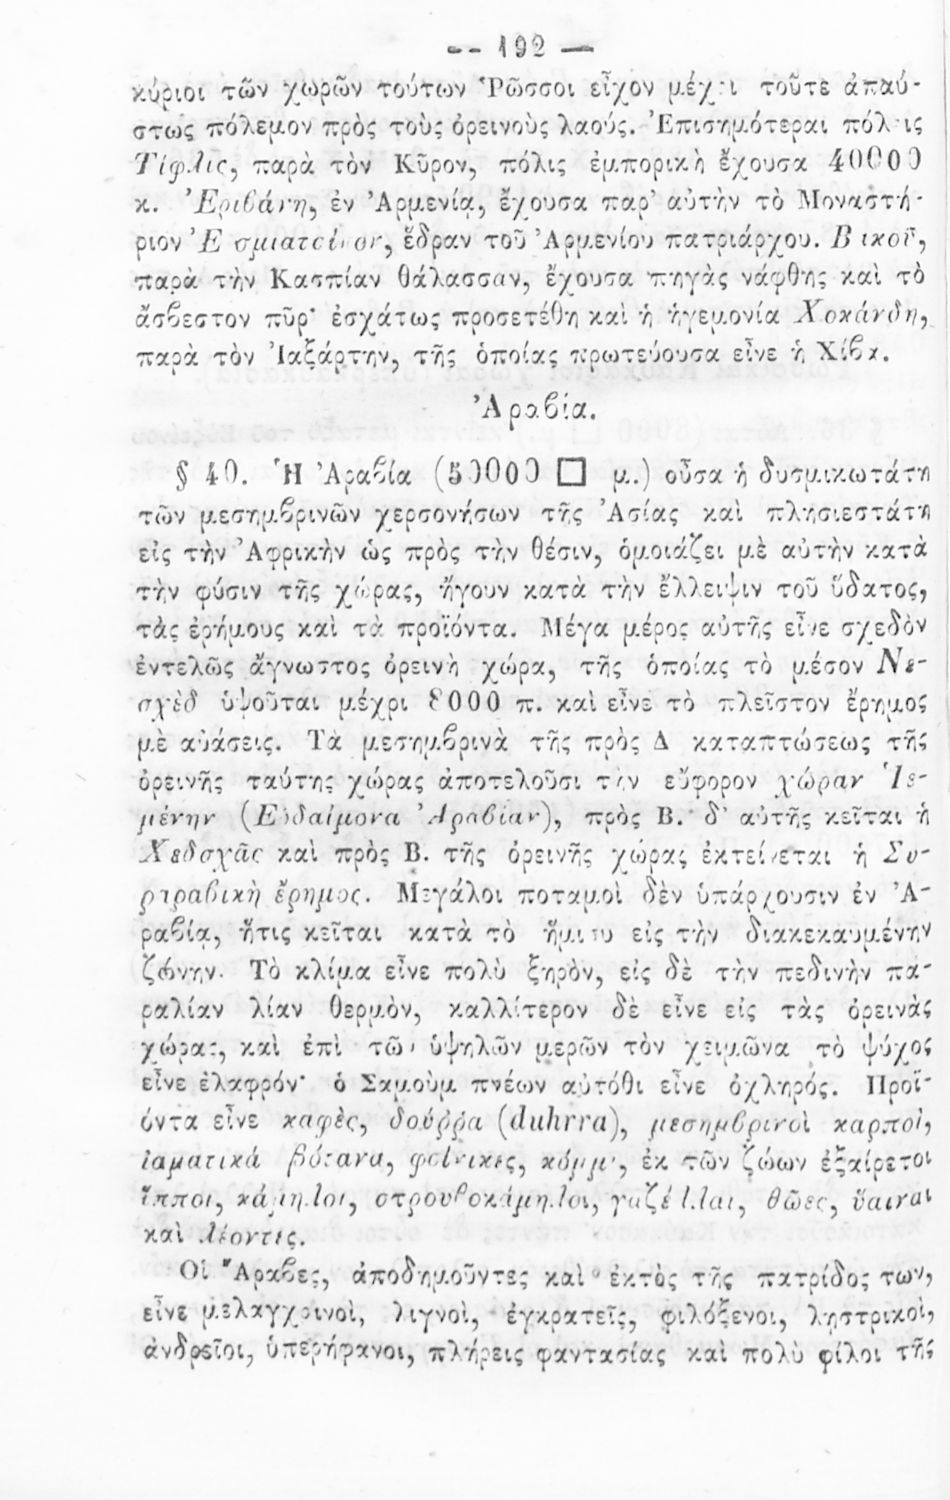 -- 192 —
κύριοι τῶν χωρῶν τούτων Ῥῶσσοι εἶχον μέχρι τοῦτε ἀπαύ-
στως πόλεμον πρὸς τοὺς ὀρεινοὺς λαούς. Ἐπισημότεραι πόλεις
Τίφλις, παρὰ τὸν Κῦρον, πόλις ἐμπορικὴ ἔχουσα 40000
κ. Ἐριβάνη, ἐν Ἀρμενίᾳ, ἔχουσα παρ' αὐτὴν τὸ Μοναστή-
ριον ἕδραν τοῦ Ἀρμενίου πατριάρχου.
παρὰ τὴν Κασπίαν θάλασσαν, ἔχουσα πηγὰς νάφθης καὶ τὸ
ἄσβεστον πῦρ· ἐσχάτως προσετέθη καὶ ἡ ἡγεμονία Χοκάνδη,
παρὰ τὸν Ἰαξάρτην, τῆς ὁποίας πρωτεύουσα εἶνε ἡ Χίβα.
Ἀραβία.
§ 40. Ἡ Ἀραβία (50000 □ μ.) οὖσα ἡ δυσμικωτάτη
τῶν μεσημβρινῶν χερσονήσων τῆς Ἀσίας καὶ πλησιεστάτη
εἰς τὴν Ἀφρικὴν ὡς πρὸς τὴν θέσιν, ὁμοιάζει μὲ αὐτὴν κατὰ
τὴν φύσιν τῆς χώρας, ἤγουν κατὰ τὴν ἔλλειψιν τοῦ ὕδατος,
τὰς ἐρήμους καὶ τὰ προϊόντα. Μέγα μέρος αὐτῆς εἶνε σχεδὸν
ἐντελῶς ἄγνωστος ὀρεινὴ χώρα, τῆς ὁποίας τὸ μέσον Νε-
σχὲδ ὑψοῦται μέχρι 8000 π. καὶ εἶνε τὸ πλεῖστον ἔρημος
μὲ αὐάσεις. Τὰ μεσημβρινὰ τῆς πρὸς Δ καταπτώσεως τῆς
ὀρεινῆς ταύτης χώρας ἀποτελοῦσι τὴν εὔφορον χώραν Ἱε-
μένην (Εὐδαίμονα Ἀραβίαν), πρὸς Β. δ' αὐτῆς κεῖται ἡ
Χεδσχᾶς καὶ πρὸς Β. τῆς ὀρεινῆς χώρας ἐκτείνεται ἡ Συ-
ροαραβικὴ ἔρημος. Μεγάλοι ποταμοὶ δὲν ὑπάρχουσιν ἐν Ἀ-
ραβίᾳ, ἥτις κεῖται κατὰ τὸ ἥμισυ εἰς τὴν διακεκαυμένην
ζώνην. Τὸ κλίμα εἶνε πολὺ ξηρὸν, εἰς δὲ τὴν πεδινὴν πα-
ραλίαν λίαν θερμὸν, καλλίτερον δὲ εἶνε εἰς τὰς ὀρεινὰς
χώρας, καὶ ἐπὶ τῶν ὑψηλῶν μερῶν τὸν χειμῶνα τὸ ψύχος
εἶνε ἐλαφρόν· ὁ Σαμοὺμ πνέων αὐτόθι εἶνε ὀχληρός. Προϊ-
όντα εἶνε καφὲς, δούῤῥα (duhrra), μεσημβρινοὶ καρποὶ,
ἰαματικὰ βότανα, φοίνικες, κόμμι, ἐκ τῶν ζώων ἐξαίρετοι
ἵπποι, κάμηλοι, στρουθοκάμηλοι, γαζέλλαι, θῶες, ὕαιναι
καὶ λέοντες.
Οἱ Ἄραβες, ἀποδημοῦντες καὶ ἐκτὸς τῆς πατρίδος των,
εἶνε μελαγχροινοὶ, λιγνοὶ, ἐγκρατεῖς, φιλόξενοι, λῃστρικοὶ,
ἀνδρεῖοι, ὑπερήφανοι, πλήρεις φαντασίας καὶ πολὺ φίλοι τῆς